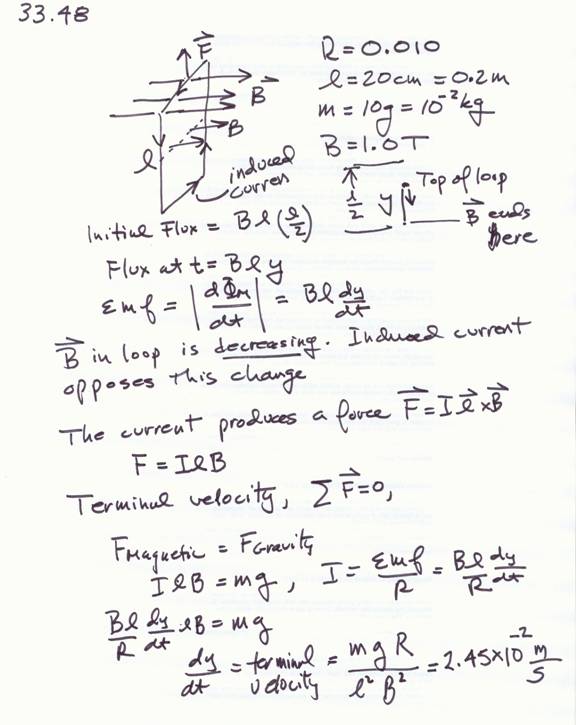 33.48
F⃗
B⃗
B
l
induced
curren
R = 0.010
l = 20cm = 0.2m
m = 10g = 10⁻²kg
B = 1.0T
l/2
y
Top of loop
B⃗ ends
here
Initial Flux = Bl(l/2)
Flux at t = Bly
Emf = |dΦM/dt| = Bl dy/dt
B⃗ in loop is decreasing. Induced current
opposes this change
The current produces a force F⃗ = I l⃗ × B⃗
F = IlB
Terminal velocity, ΣF⃗ = 0,
FMagnetic = FGravity
IlB = mg, I = Emf/R = Bl/R dy/dt
Bl/R dy/dt lB = mg
dy/dt = terminal velocity = mgR/l²B² = 2.45×10⁻² m/s